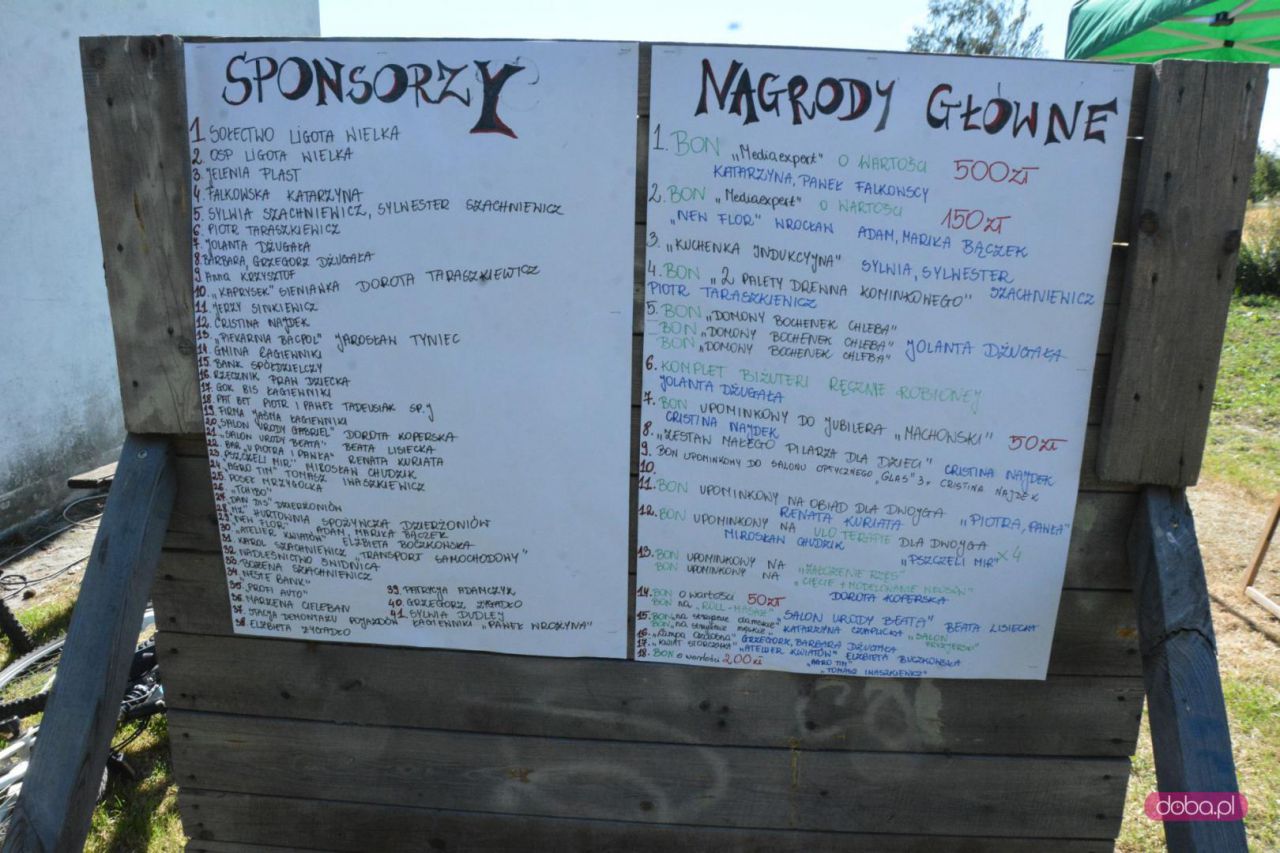 SPONSORZY
1. SOŁECTWO LIGOTA WIELKA
2. OSP LIGOTA WIELKA
3. JELENIA PLAST
4. FALKOWSKA KATARZYNA
5. SYLWIA SZACHNIEWICZ, SYLWESTER SZACHNIEWICZ
6. PIOTR TARASZKIEWICZ
7. JOLANTA DŻUGAŁA
8. BARBARA, GRZEGORZ DŻUGAŁA
9. Anna KRZYSZTOF
10. „KAPRYSEK" SIENIAWKA DOROTA TARASZKIEWICZ
11. JERZY SINKIEWICZ
12. CRISTINA NAJDEK
13. „PIEKARNIA BACPOL" JAROSŁAW TYNIEC
14. GMINA ŁAGIEWNIKI
15. BANK SPÓŁDZIELCZY
16. RZECZNIK PRAW DZIECKA
17. GOK BIS ŁAGIEWNIKI
18. PAT BET PIOTR I PAWEŁ TADEUSIAK SP. J
19. FIRMA JAŚMA ŁAGIEWNIKI
20. SALON "URODY GABRIEL" DOROTA KOPERSKA
21. „SALON URODY BEATA" BEATA LISIECKA
22. BAR „U PIOTRA I PAWŁA" RENATA KURIATA
23. PSZCZELI MIR" MIROSŁAW CHUDZIK
24. „AGRO TIM" TOMASZ IWASZKIEWICZ
25. POSEŁ MRZYGŁOCKA
26. "TCHIBO"
27. DAN DIS" DZIERŻONIÓW
28. HURTOWNIA SPOŻYWCZA DZIERŻONIÓW
29. „NEW FLOR" ADAM, MARIKA BĄCZEK
30. "ATELIER KWIATÓW" ELŻBIETA BUCZKOWSKA
31. KAROL SZACHNIEWICZ „TRANSPORT SAMOCHODOWY"
32. NADLEŚNICTWO ŚWIDNICA
33. BOŻENA SZACHNIEWICZ
34. „NESTE BANK"
35. „PROFI AUTO"
36. MARZENA
37. STACJA DEMONTAŻU POJAZDÓW ŁAGIEWNIKI „PAWEŁ WROŻYNA"
38. ELŻBIETA ZYGADŁO
39. PATRYCJA ADAMCZYK
40. GRZEGORZ ZYGADŁO
41. SYLWIA DUDLEJ
NAGRODY GŁÓWNE
1. BON „Mediaexpert" O WARTOŚCI 500ZŁ
KATARZYNA, PAWEŁ FALKOWSCY
2. BON „Mediaexpert" O WARTOŚCI 150ZŁ
„NEW FLOR" WROCŁAW ADAM, MARIKA BĄCZEK
3. „KUCHENKA INDUKCYJNA" SYLWIA, SYLWESTER SZACHNIEWICZ
4. BON „2 PALETY DREWNA KOMINKOWEGO"
PIOTR TARASZKIEWICZ
5. BON „DOMOWY BOCHENEK CHLEBA"
BON „DOMOWY BOCHENEK CHLEBA"
BON „DOMOWY BOCHENEK CHLEBA" JOLANTA DŻUGAŁA
6. KOMPLET BIŻUTERI RĘCZNIE ROBIONEJ
JOLANTA DŻUGAŁA
7. BON UPOMINKOWY DO JUBILERA „MACHOWSKI" 50ZŁ
CRISTINA NAJDEK
8. „ZESTAW MAŁEGO PILARZA DLA DZIECI" CRISTINA NAJDEK
9. BON UPOMINKOWY DO SALONU OPTYCZNEGO „GLAS" CRISTINA NAJDEK
10.
11. BON UPOMINKOWY NA OBIAD DLA DWOJGA „PIOTRA, PAWŁA"
RENATA KURIATA
12. BON UPOMINKOWY NA ULO TERAPIE DLA DWOJGA x4
MIROSŁAW CHUDZIK „PSZCZELI MIR"
13. BON UPOMINKOWY NA „ZAGĘSZCZENIE RZĘS"
BON UPOMINKOWY NA „CIĘCIE + MODELOWANIE WŁOSÓW"
DOROTA KOPERSKA
14. BON O WARTOŚCI 50ZŁ
BON na „ROLL-MASAŻ" „SALON URODY BEATA" BEATA LISIECKA
15. BON na strzyżenie damskie
BON na strzyżenie męskie KATARZYNA CZAPLICKA „SALON FRYZJERSKI"
16. „Lampa Ozdobna" GRZEGORZ, BARBARA DŻUGAŁA
17. „KWIAT STORCZYKA" "ATELIER KWIATÓW" ELŻBIETA BUCZKOWSKA
18. BON o wartości 200 zł „AGRO TIM"
„TOMASZ IWASZKIEWICZ"
doba.pl